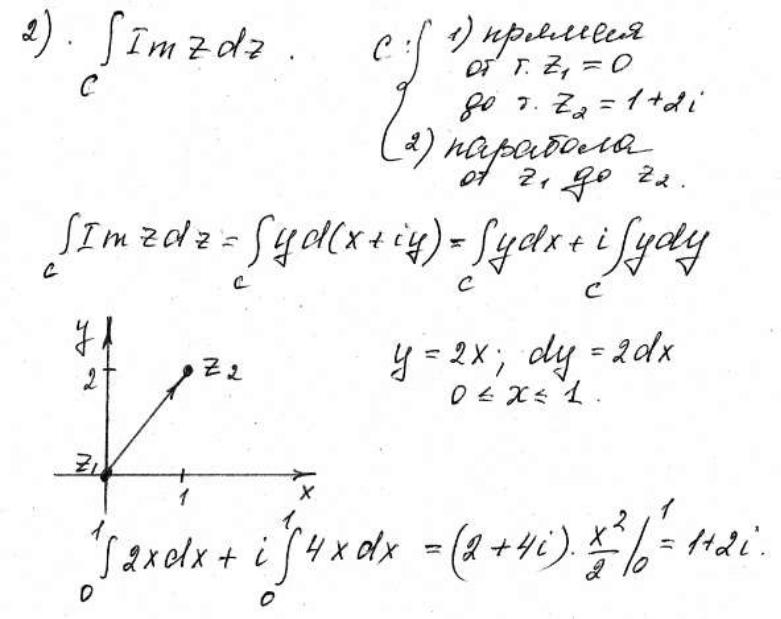 2). ∫_C Im z dz. C: { 1) прямая
от т. z₁ = 0
до т. z₂ = 1+2i
2) парабола
от z₁ до z₂.
∫_C Im z dz = ∫_C y d(x+iy) = ∫_C y dx + i ∫_C y dy
y
2
z₂
y = 2x; dy = 2dx
0 ≤ x ≤ 1.
z₁
1
x
∫₀¹ 2x dx + i ∫₀¹ 4x dx = (2+4i) · x²/2 |₀¹ = 1+2i.